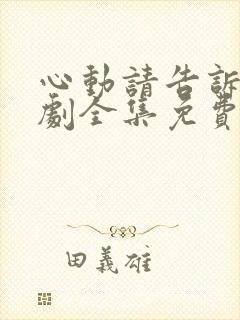 心動請告訴
劇全集免費
田義雄